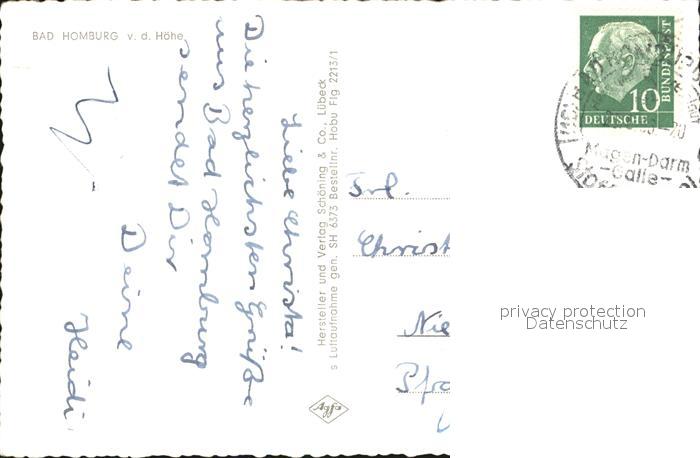 BAD HOMBURG v. d. Höhe
Liebe Christa!
Die herzlichsten Grüße
aus Bad Homburg
sendet Dir
Deine
Heidi
Hersteller und Verlag Schöning & Co., Lübeck
s Luftaufnahme gen. SH 6373 Bestellnr. Hobu Flg 2213/1
Agfa
10
DEUTSCHE
BUNDESPOST
Magen-Darm
-Galle-
Frl.
Christ
Nie
Pfra
privacy protection
Datenschutz